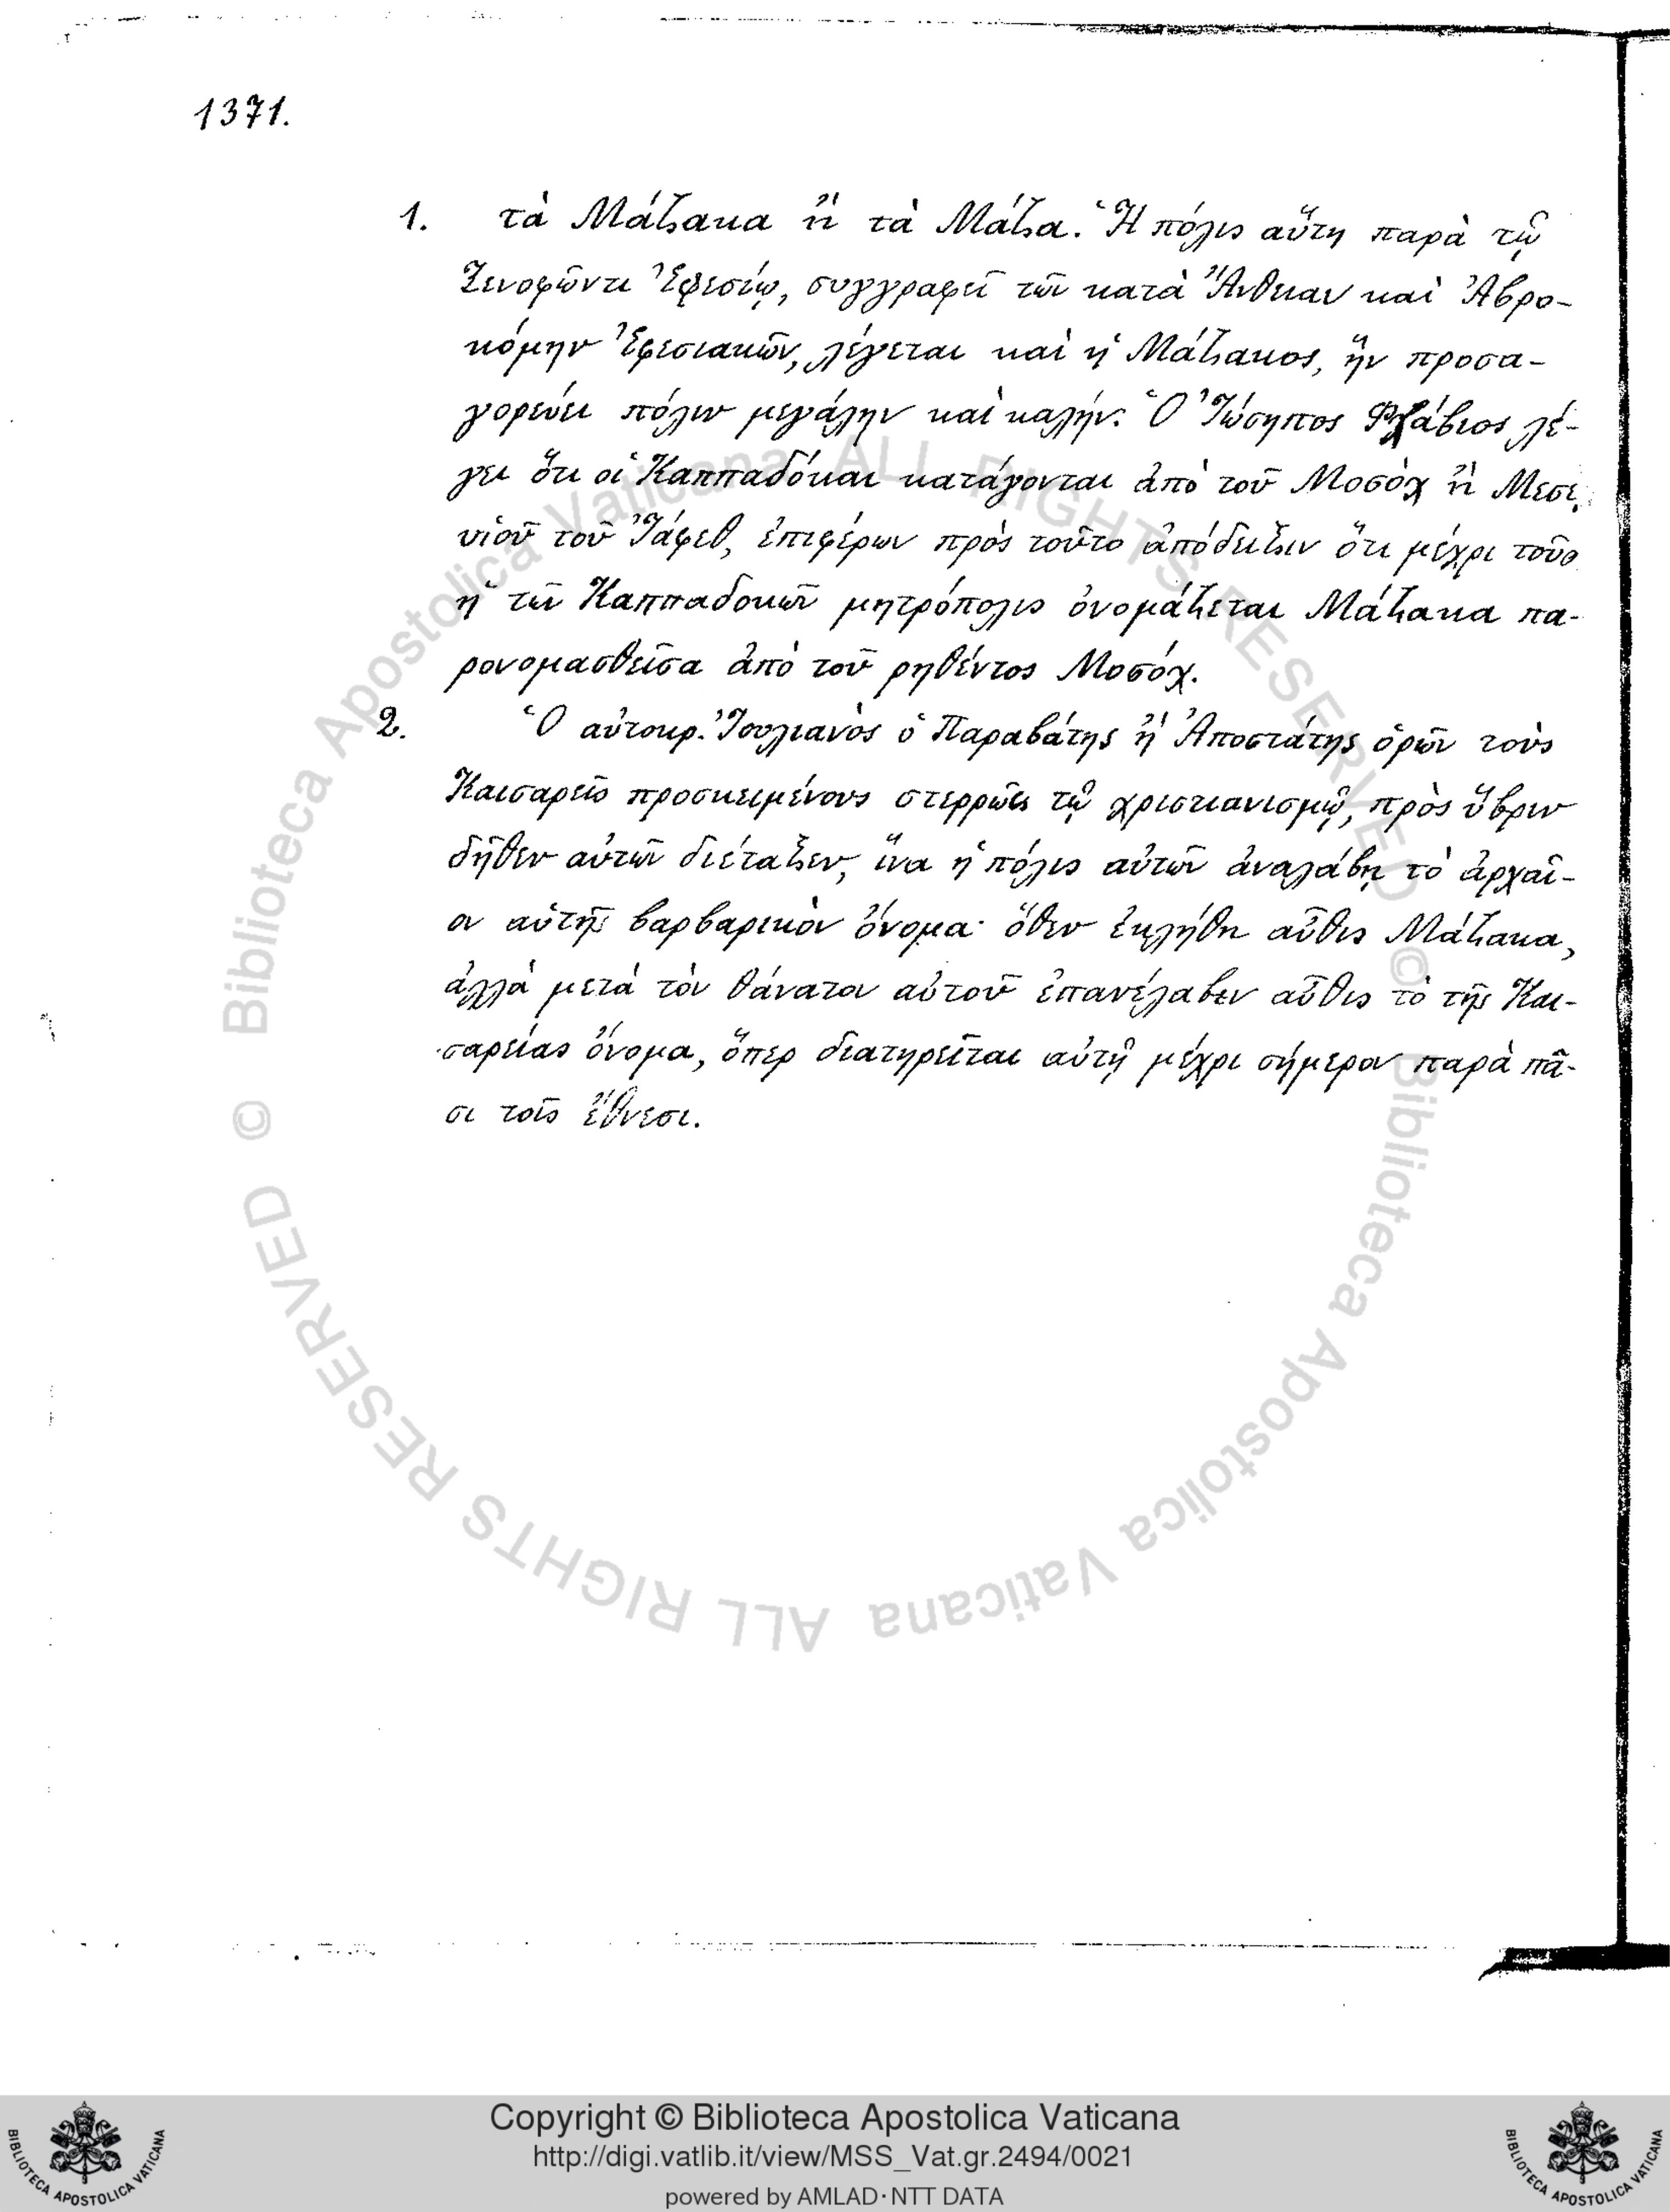 1371.
1. τὰ Μάζακα ἢ τὰ Μάζα. Ἡ πόλις αὕτη παρὰ τῷ
Ξενοφῶντι Ἐφεσίῳ, συγγραφεῖ τῶν κατὰ Ἄνθειαν καὶ Ἀβρο-
κόμην Ἐφεσιακῶν, λέγεται καὶ ἡ Μάζακος, ἣν προσα-
γορεύει πόλιν μεγάλην καὶ καλήν. Ὁ Ἰώσηπος Φλάβιος λέ-
γει ὅτι οἱ Καππαδόκαι κατάγονται ἀπὸ τοῦ Μοσὸχ ἢ Μεσὲ
υἱοῦ τοῦ Ἰάφεθ, ἐπιφέρων πρὸς τοῦτο ἀπόδειξιν ὅτι μέχρι τοῦδ
ἡ τῶν Καππαδοκῶν μητρόπολις ὀνομάζεται Μάζακα πα-
ρονομασθεῖσα ἀπὸ τοῦ ρηθέντος Μοσόχ.
2. Ὁ αὐτοκρ. Ἰουλιανὸς ὁ Παραβάτης ἢ Ἀποστάτης ὁρῶν τοὺς
Καισαρεῖς προσκειμένους στερρῶς τῷ χριστιανισμῷ, πρὸς ὕβριν
δῆθεν αὐτῶν διέταξεν, ἵνα ἡ πόλις αὐτῶν ἀναλάβῃ τὸ ἀρχαῖ-
ον αὐτῆς βαρβαρικὸν ὄνομα· ὅθεν ἐκλήθη αὖθις Μάζακα,
ἀλλὰ μετὰ τὸν θάνατον αὐτοῦ ἐπανέλαβεν αὖθις τὸ τῆς Και-
σαρείας ὄνομα, ὅπερ διατηρεῖται αὐτῇ μέχρι σήμερον παρὰ πᾶ-
σι τοῖς ἔθνεσι.
© Biblioteca Apostolica Vaticana ALL RIGHTS RESERVED
© Biblioteca Apostolica Vaticana ALL RIGHTS RESERVED
Copyright © Biblioteca Apostolica Vaticana
http://digi.vatlib.it/view/MSS_Vat.gr.2494/0021
powered by AMLAD·NTT DATA
BIBLIOTECA APOSTOLICA VATICANA
BIBLIOTECA APOSTOLICA VATICANA